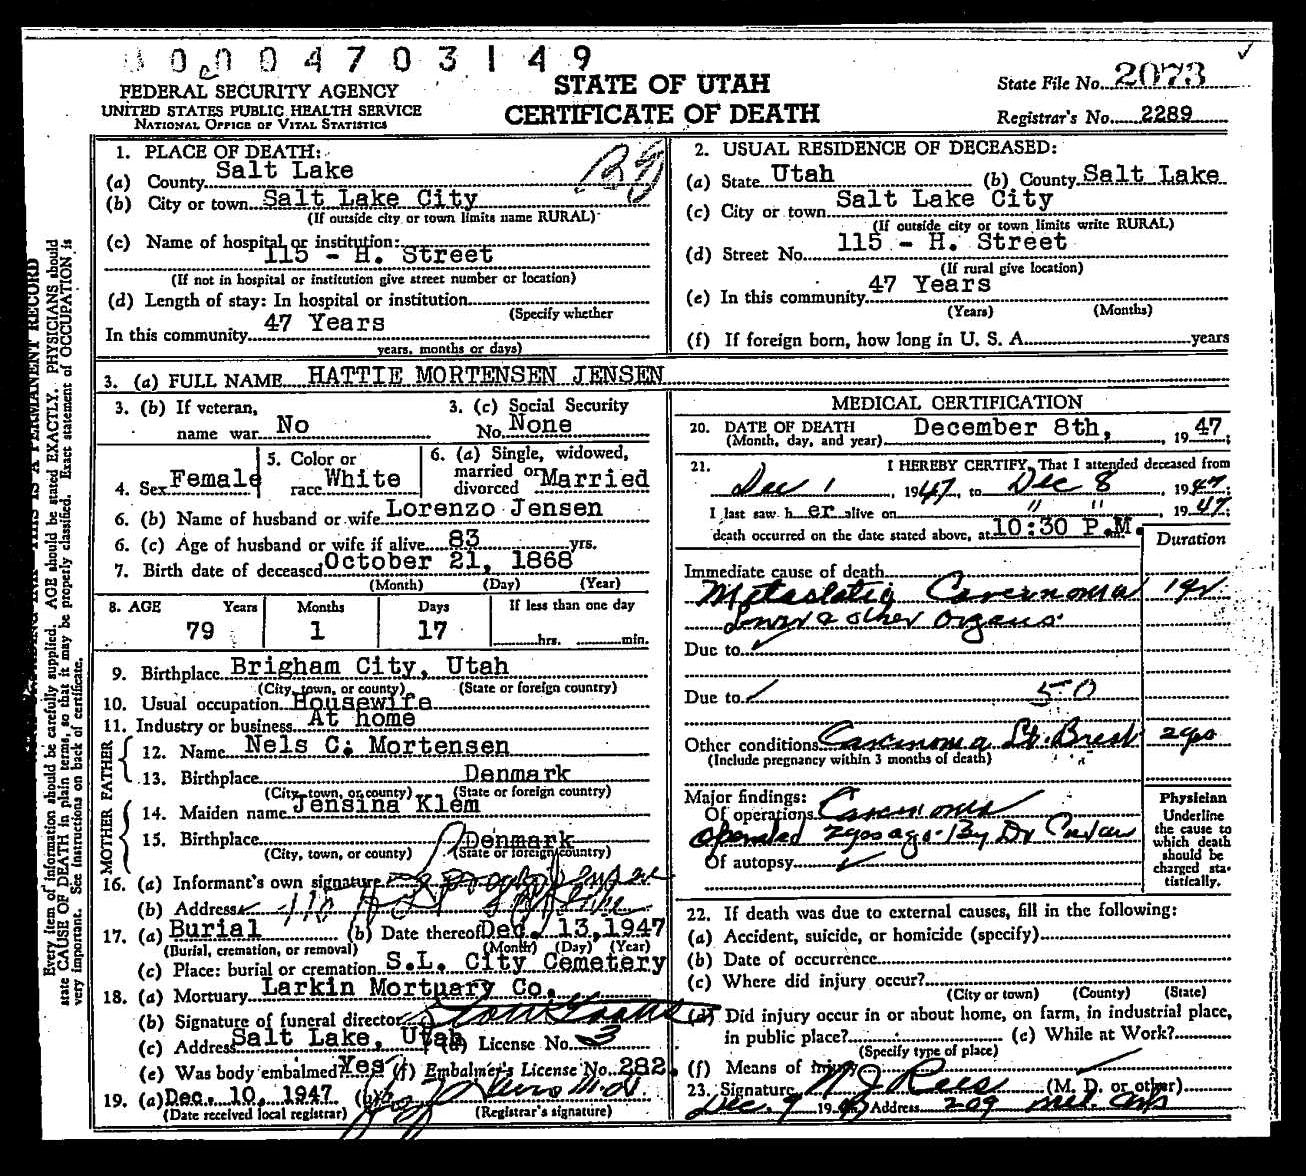 0004703149
FEDERAL SECURITY AGENCY
UNITED STATES PUBLIC HEALTH SERVICE
NATIONAL OFFICE OF VITAL STATISTICS
STATE OF UTAH
CERTIFICATE OF DEATH
State File No. 2073
Registrar's No. 2289
1. PLACE OF DEATH:
(a) County Salt Lake
(b) City or town Salt Lake City
(If outside city or town limits name RURAL)
(c) Name of hospital or institution:
115 - H. Street
(If not in hospital or institution give street number or location)
(d) Length of stay: In hospital or institution
(Specify whether
In this community 47 Years
years, months or days)
2. USUAL RESIDENCE OF DECEASED:
(a) State Utah (b) County Salt Lake
(c) City or town Salt Lake City
(If outside city or town limits write RURAL)
(d) Street No. 115 - H. Street
(If rural give location)
(e) In this community 47 Years
(Years) (Months)
(f) If foreign born, how long in U. S. A. years
3. (a) FULL NAME HATTIE MORTENSEN JENSEN
3. (b) If veteran,
name war No
3. (c) Social Security
No. None
4. Sex Female
5. Color or
race White
6. (a) Single, widowed,
married or
divorced Married
6. (b) Name of husband or wife Lorenzo Jensen
6. (c) Age of husband or wife if alive 83 yrs.
7. Birth date of deceased October 21, 1868
(Month) (Day) (Year)
8. AGE Years Months Days If less than one day
79 1 17 hrs. min.
9. Birthplace Brigham City, Utah
(City, town, or county) (State or foreign country)
10. Usual occupation Housewife
11. Industry or business At home
FATHER
12. Name Nels C. Mortensen
13. Birthplace Denmark
(City, town, or county) (State or foreign country)
MOTHER
14. Maiden name Jensina Klem
15. Birthplace Denmark
(City, town, or county) (State or foreign country)
16. (a) Informant's own signature
(b) Address
17. (a) Burial (b) Date thereof Dec. 13, 1947
(Burial, cremation, or removal) (Month) (Day) (Year)
(c) Place: burial or cremation S.L. City Cemetery
18. (a) Mortuary Larkin Mortuary Co.
(b) Signature of funeral director
(c) Address Salt Lake, Utah (d) License No. 3
(e) Was body embalmed? Yes (f) Embalmer's License No. 282.
19. (a) Dec. 10, 1947 (b)
(Date received local registrar) (Registrar's signature)
MEDICAL CERTIFICATION
20. DATE OF DEATH
(Month, day, and year) December 8th, , 1947;
21. I HEREBY CERTIFY, That I attended deceased from
Dec 1, 1947, to Dec 8, 1947.
I last saw her alive on " ", 1947;
death occurred on the date stated above, at 10:30 P.M.
Duration
Immediate cause of death
Metastatic Carcenoma 1 yr
& other organs.
Due to
Due to 50
Other conditions Carcinoma Lt. Brest 2 yrs
(Include pregnancy within 3 months of death)
Major findings:
Of operations Carcinoma
operated 2 yrs ago By Dr
Of autopsy
Physician
Underline
the cause to
which death
should be
charged sta-
tistically.
22. If death was due to external causes, fill in the following:
(a) Accident, suicide, or homicide (specify)
(b) Date of occurrence
(c) Where did injury occur?
(City or town) (County) (State)
(d) Did injury occur in or about home, on farm, in industrial place,
in public place? (e) While at Work?
(Specify type of place)
(f) Means of injury
23. Signature J Rees (M. D. or other)
Dec. 9 1947 Address 209 Med. Arts
Every item of information should be carefully supplied. AGE should be stated EXACTLY. PHYSICIANS should
state CAUSE OF DEATH in plain terms, so that it may be properly classified. Exact statement of OCCUPATION is
very important. See instructions on back of certificate.
THIS IS A PERMANENT RECORD